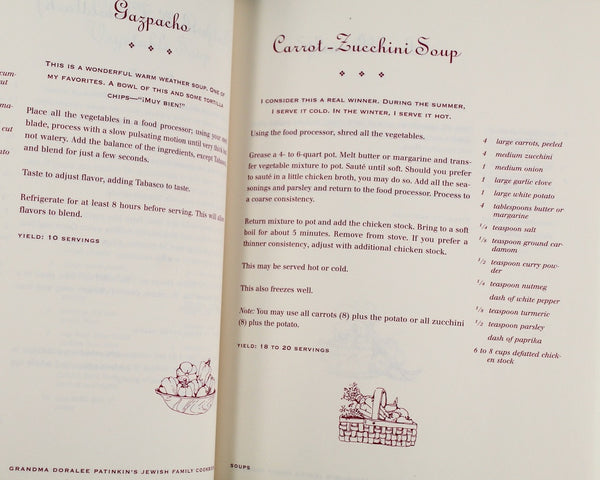 Gazpacho
THIS IS A WONDERFUL WARM WEATHER SOUP. ONE OF
MY FAVORITES. A BOWL OF THIS AND SOME TORTILLA
CHIPS—"¡MUY BIEN!"
cum-
cut
ma-
cut
nto
Place all the vegetables in a food processor; using your
blade, process with a slow pulsating motion until very
not watery. Add the balance of the ingredients, except
and blend for just a few seconds.
Taste to adjust flavor, adding Tabasco to taste.
Refrigerate for at least 8 hours before serving. This will
flavors to blend.
YIELD: 10 SERVINGS
GRANDMA DORALEE PATINKIN'S JEWISH FAMILY
Carrot-Zucchini Soup
I CONSIDER THIS A REAL WINNER. DURING THE SUMMER,
I SERVE IT COLD. IN THE WINTER, I SERVE IT HOT.
Using the food processor, shred all the vegetables.
Grease a 4- to 6-quart pot. Melt butter or margarine and trans-
fer vegetable mixture to pot. Sauté until soft. Should you prefer
to sauté in a little chicken broth, you may do so. Add all the sea-
sonings and parsley and return to the food processor. Process to
a coarse consistency.
Return mixture to pot and add the chicken stock. Bring to a soft
boil for about 5 minutes. Remove from stove. If you prefer a
thinner consistency, adjust with additional chicken stock.
This may be served hot or cold.
This also freezes well.
Note: You may use all carrots (8) plus the potato or all zucchini
(8) plus the potato.
YIELD: 18 TO 20 SERVINGS
4 large carrots, peeled
4 medium zucchini
1 medium onion
1 large garlic clove
1 large white potato
4 tablespoons butter or
margarine
1/4 teaspoon salt
1/8 teaspoon ground car-
damom
1/2 teaspoon curry pow-
der
1/4 teaspoon nutmeg
dash of white pepper
1/8 teaspoon turmeric
1/2 teaspoon parsley
dash of paprika
6 to 8 cups defatted chick-
en stock
SOUPS